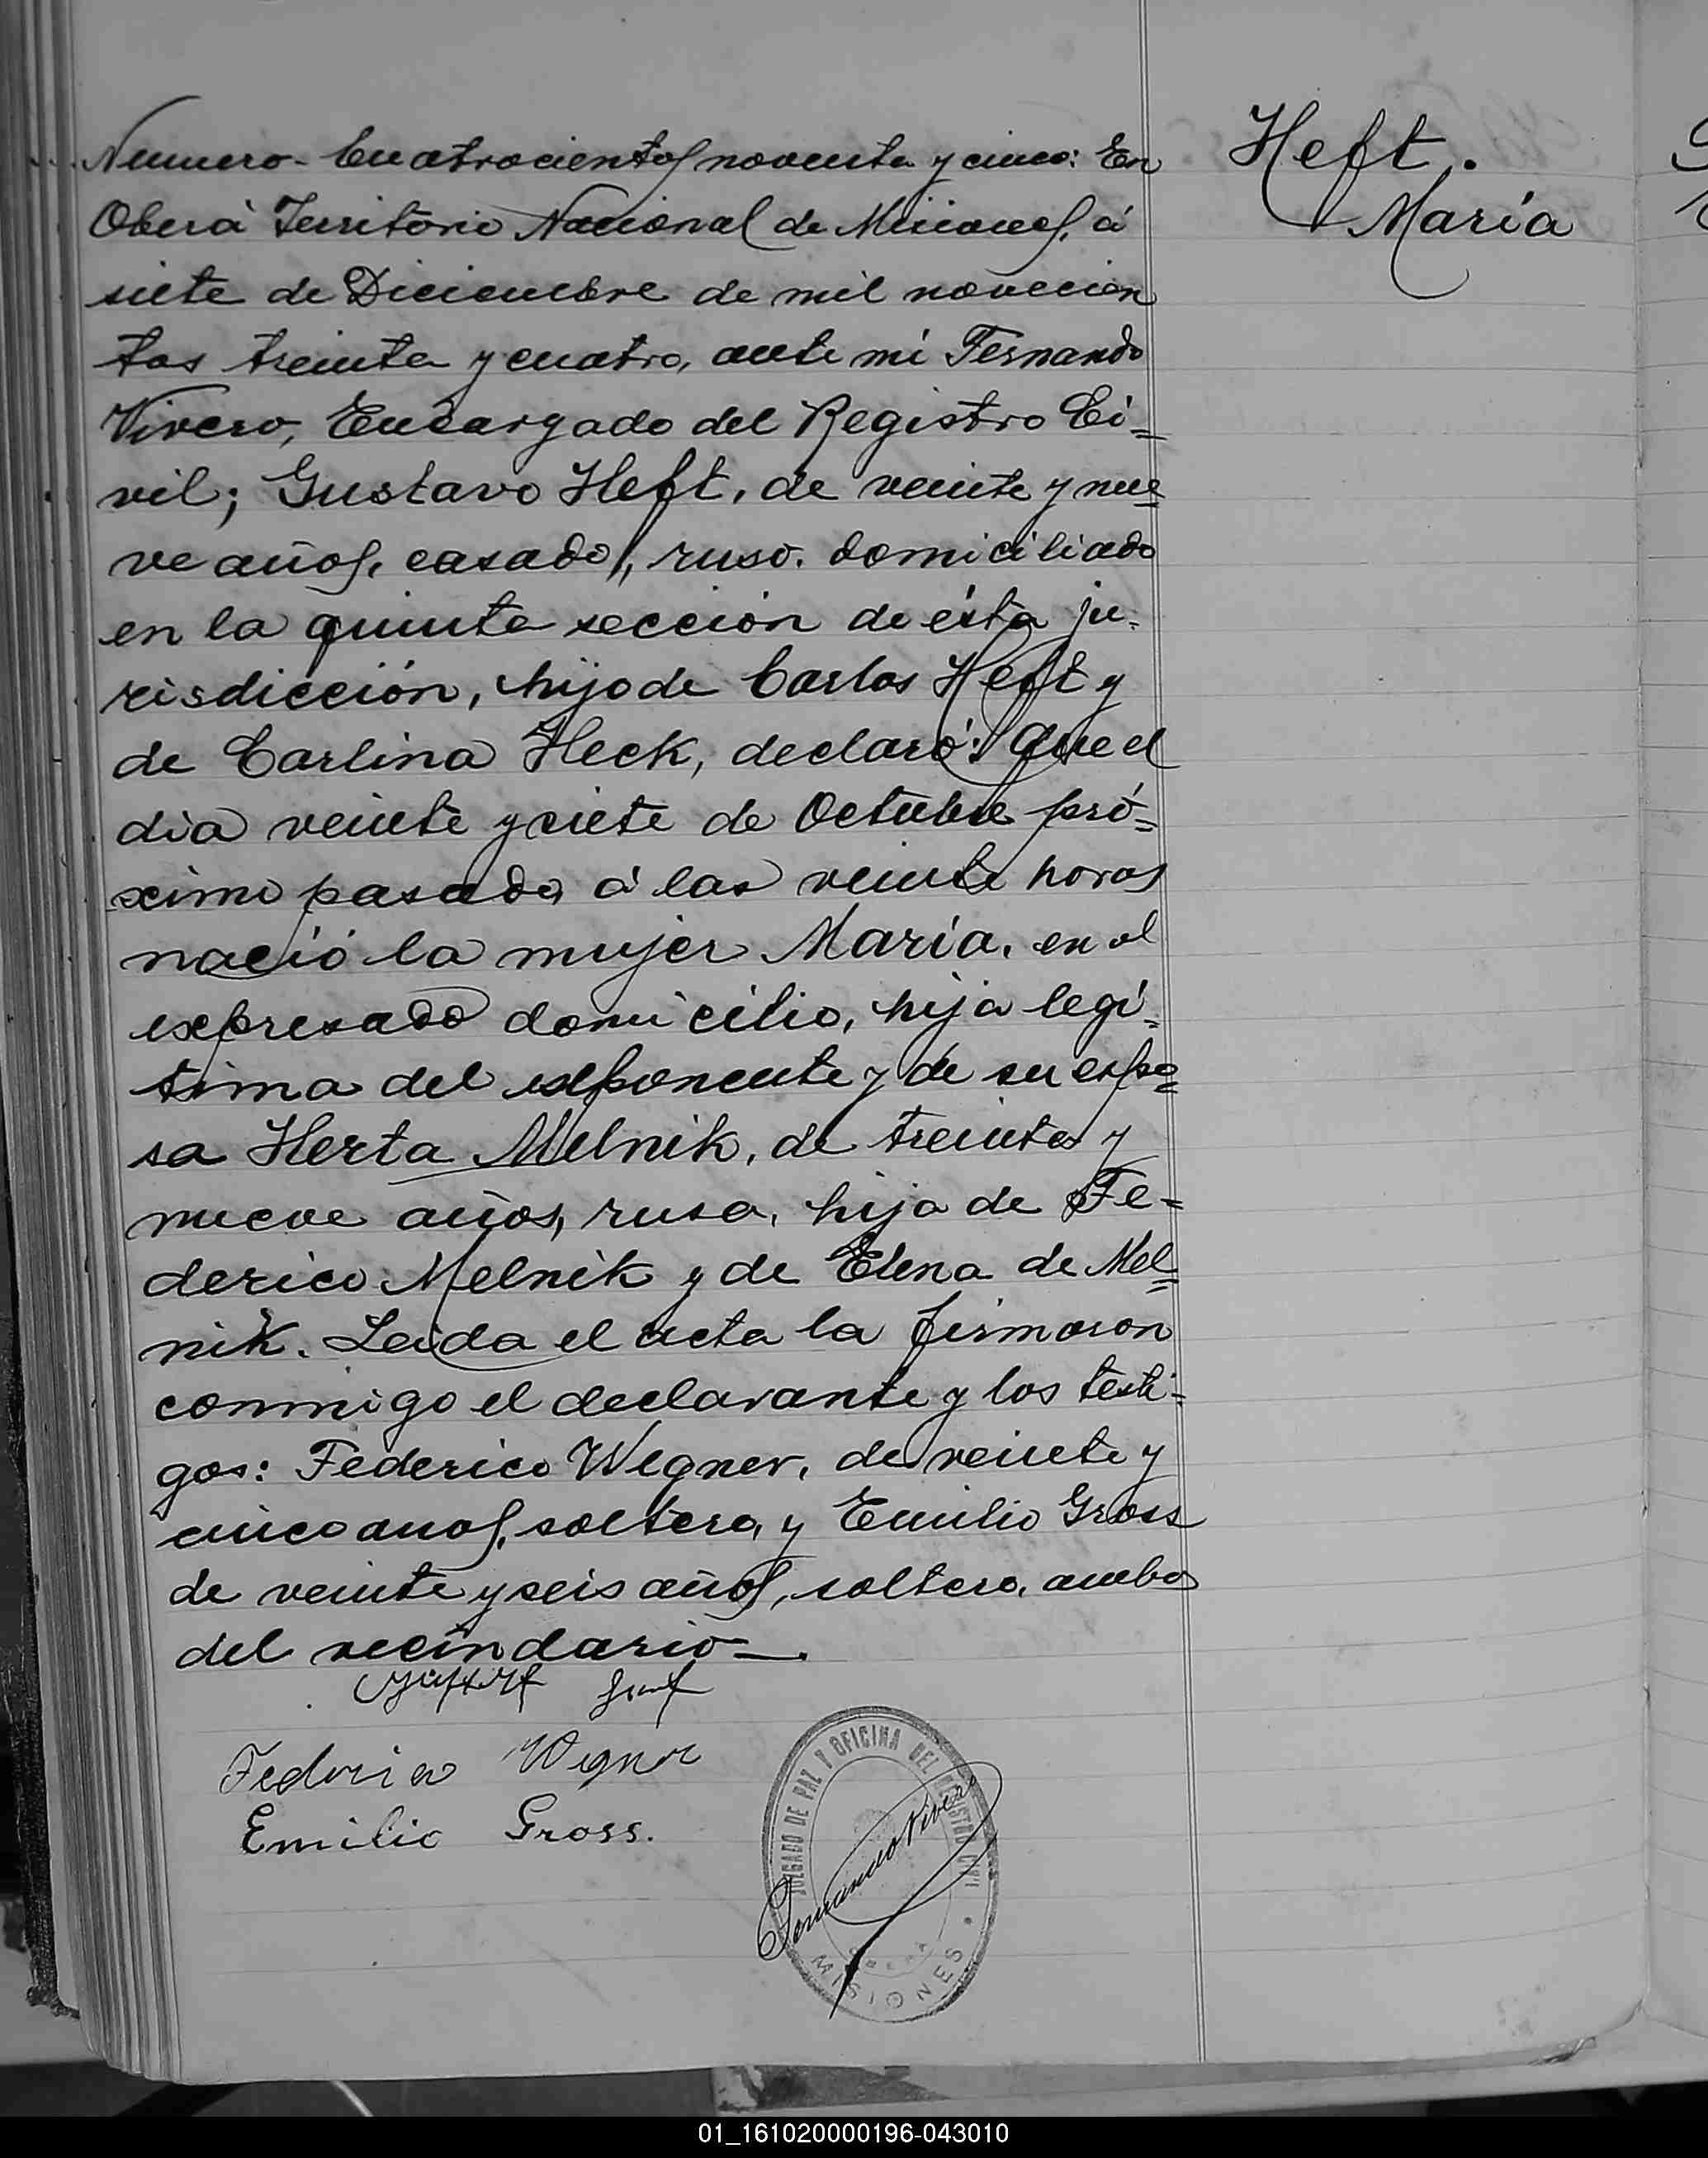 Numero - Cuatrocientos noventa y cinco: En
Oberá Territorio Nacional de Misiones, á
siete de Diciembre de mil novecien
tos treinta y cuatro, ante mi Fernando
Vivero, Encargado del Registro Ci=
vil; Gustavo Heft, de veinte y nue=
ve años, casado, ruso. domiciliado
en la quinta sección de ésta ju-
risdicción, hijo de Carlos Heft y
de Carlina Heck, declaró: Que el
dia veinte y siete de Octubre pró=
ximo pasado, á las veinte horas
nació la mujer María, en el
expresado domicilio, hija legí-
tima del exponente y de su espo=
sa Herta Melnik, de treinta y
nueve años, rusa, hija de Fe=
derico Melnik y de Elena de Mel=
nik. Leida el acta la firmaron
conmigo el declarante y los testi=
gos: Federico Wegner, de veinte y
cinco años, soltero, y Emilio Gross
de veinte y seis años, soltero, ambos
del vecindario—.
Federico Wegner
Emilio Gross.
Heft.
María
JUZGADO DE PAZ Y OFICINA DEL REGISTRO CIVIL
OBERA
MISIONES
Fernando Vivero
01_161020000196-043010